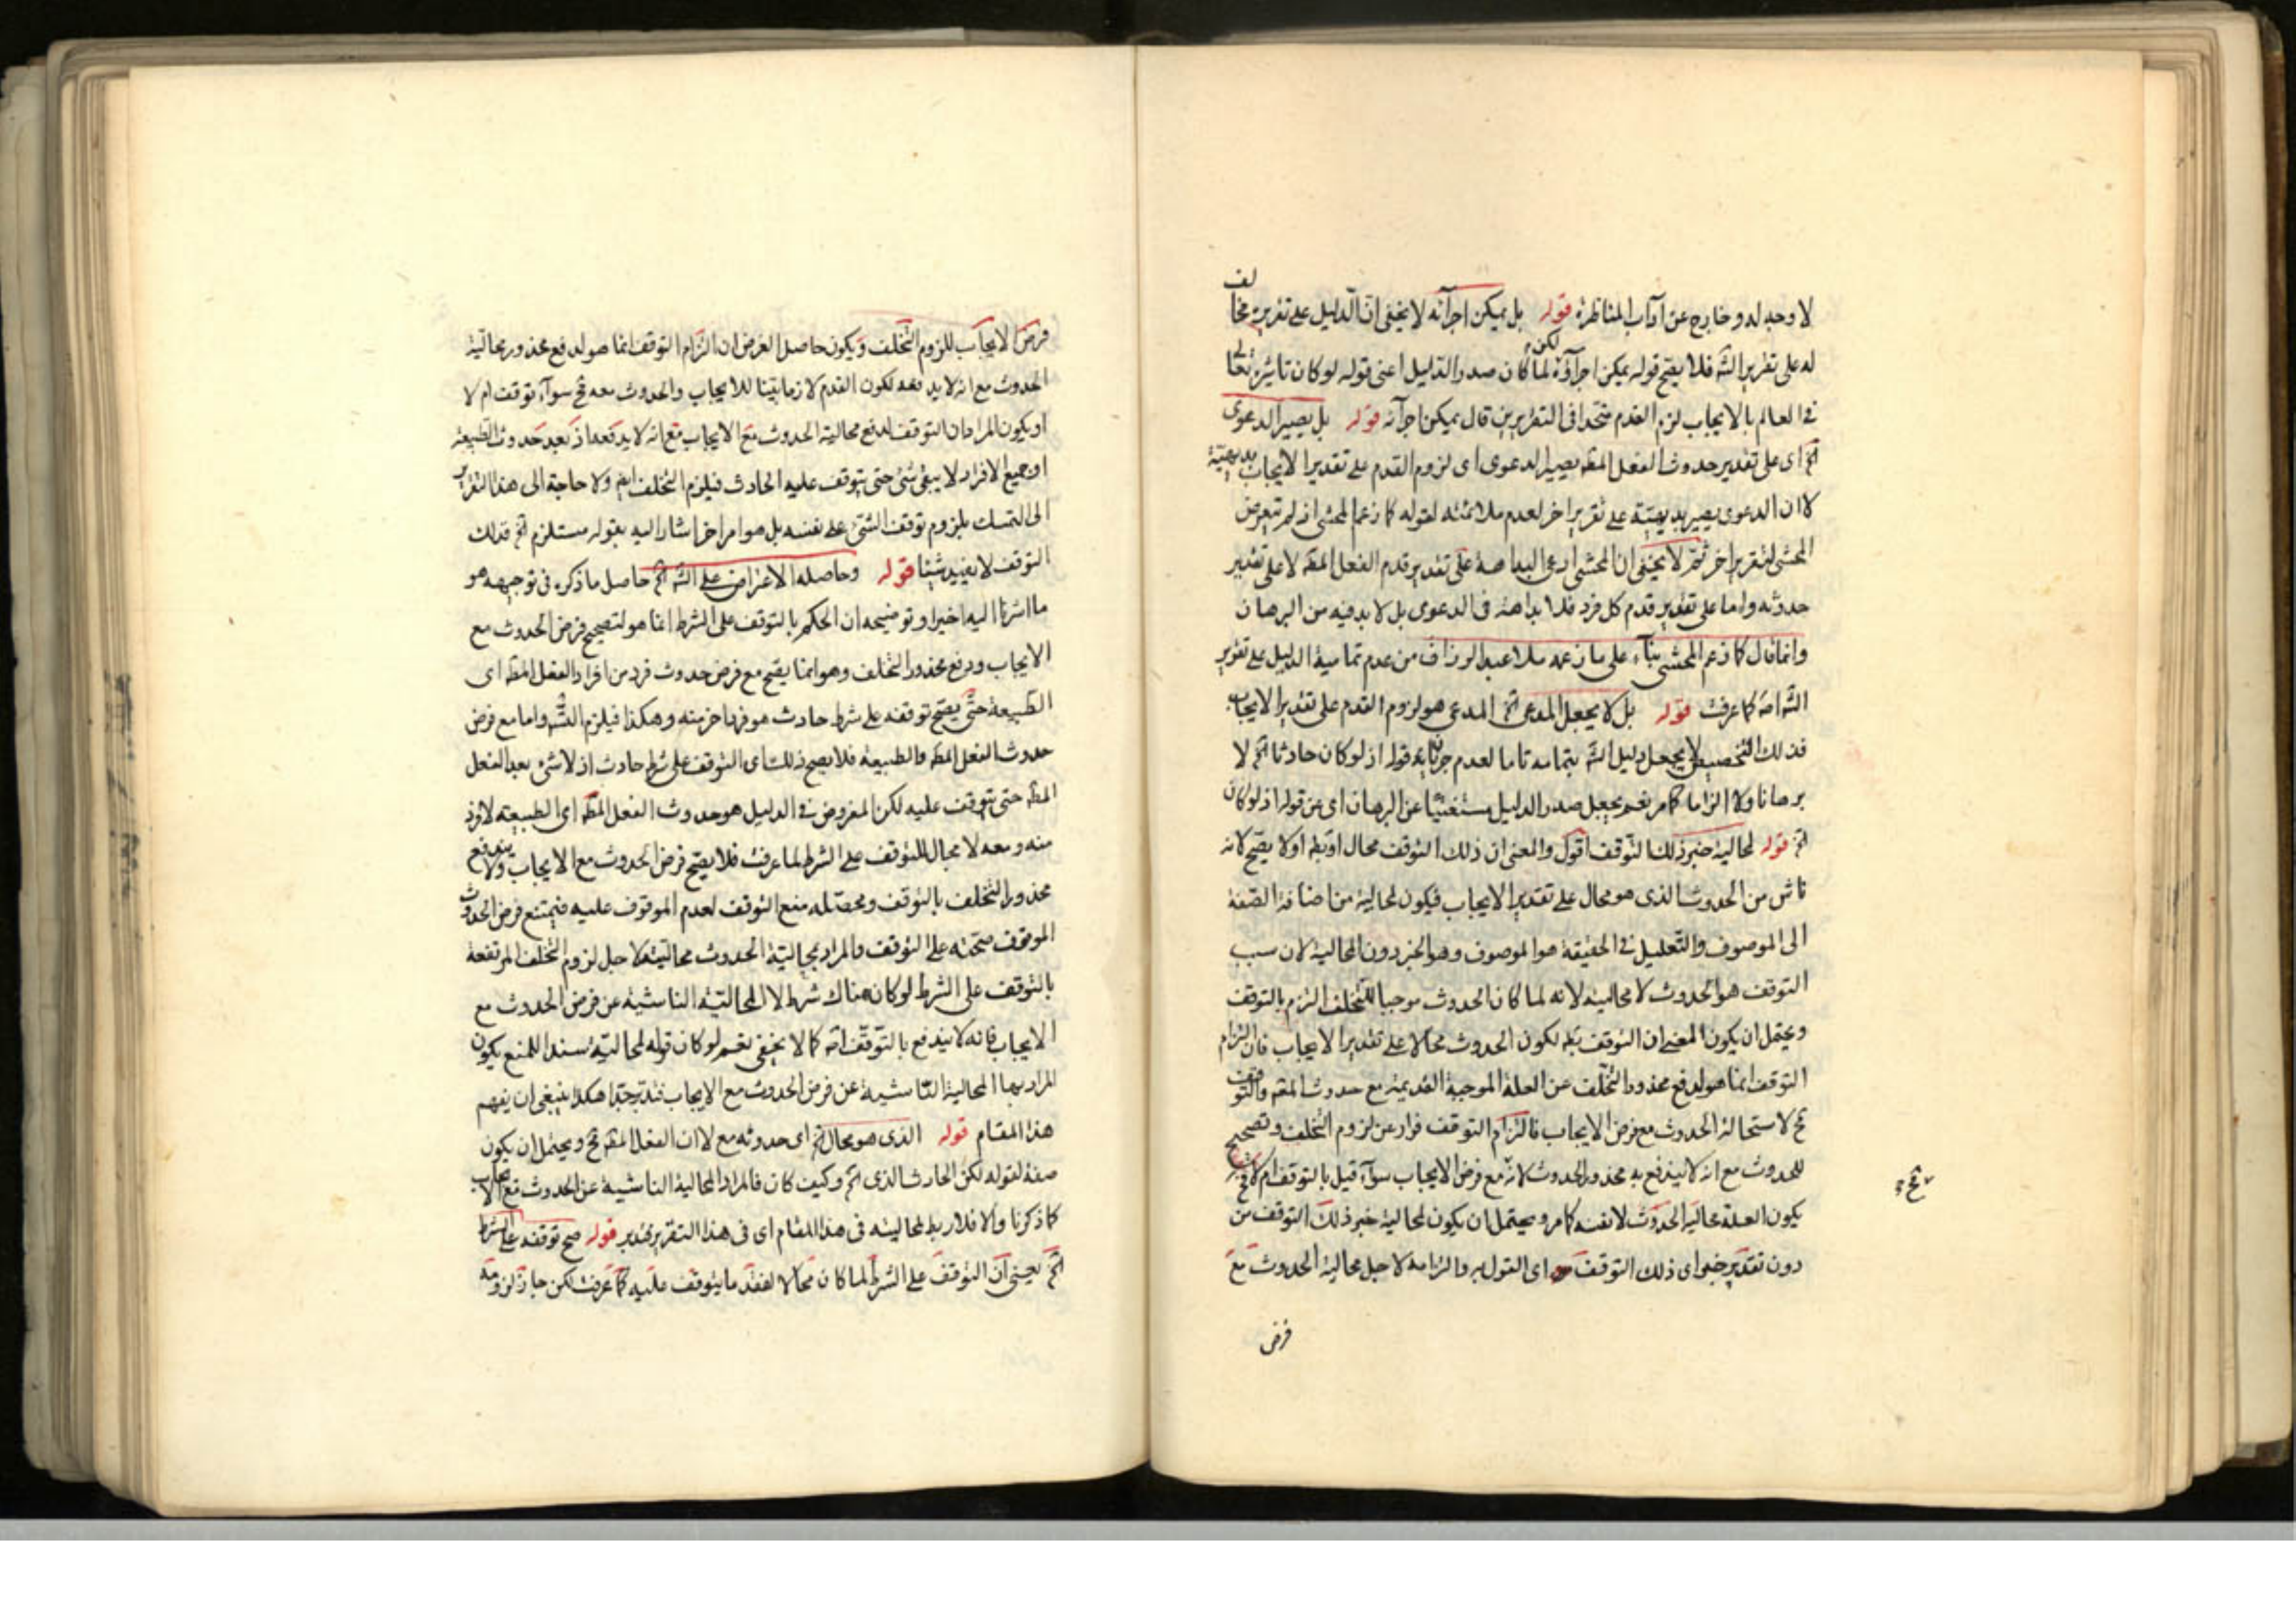 لا وجه له و خارج عن آداب المناظرة قوله بل يمكن اجرآئه لا يخفى ان الدليل على تقريره مخالف
له على تقرير الشه فلا يصح قوله يمكن اجرآؤه لكن لما كان صدر الدليل اعنى قوله لو كان تاثيره تعا
فى العالم بالايجاب لزم القدم متحدا فى التقريرين قال يمكن اجرآئه قوله بل يصير الدعوى
اه اى على تقدير حدوث الفعل المط يصير الدعوى اى لزوم القدم على تقدير الايجاب بديهيّة
لا ان الدعوى يصير بديهيّة على تقرير اخر لعدم ملائمته لقوله كما زعم المحشى اذ لم تعرض
المحشى لتقرير اخر ثم لا يخفى ان المحشى ادعى البداهة على تقدير قدم الفعل المط لا على تقدير
حدوثه واما على تقدير قدم كل فرد فلا بداهة فى الدعوى بل لا بد فيه من البرهان
وانما قال كما زعم المحشى بنآء على ما زعمه ملا عبد الرزاق من عدم تمامية الدليل على تقرير
الشه اصه كما عرفت قوله بل لا يجعل المدعى اه المدعى هو لزوم القدم على تقدير الايجاب
فذلك التخصيص لا يجعل دليل الشه بتمامه تاما لعدم جريانه قوله اذ لو كان حادثا اه لا
برهانا ولا الزاما كما مر نعم يجعل صدر الدليل مستغنيا عن البرهان اى عن قوله اذ لو كان
اه قوله لمحالية خبر ذلك التوقف اقول والمعنى ان ذلك التوقف محال او بط او لا يصح لانه
ناش من الحدوث الذى هو محال على تقدير الايجاب فيكون لمحالية من اضافة الصفة
الى الموصوف والتعليل فى الحقيقة هو الموصوف وهو الخبر دون المحالية لان سبب
التوقف هو الحدوث لا محاليته لانه لما كان الحدوث موجبا للتخلف الزم بالتوقف
ويحتمل ان يكون المعنى ان التوقف بط لكون الحدوث محالا على تقدير الايجاب فان التزام
التوقف انما هو لدفع محذور التخلف عن العلة الموجبة القديمة مع حدوث المط والتوقف
مح لاستحالة الحدوث مع فرض الايجاب فالتزام التوقف فرار عن لزوم التخلف وتصحيح
للحدوث مع انه لا يندفع به محذور الحدوث لانه مع فرض الايجاب سوآء قيل بالتوقف ام لا فح
مح
يكون العلة محالية الحدوث لا نفسه كما مر ويحتمل ان يكون لمحالية خبر ذلك التوقف من
دون تقدير خبر اى ذلك التوقف اى القول به والزامه لاجل محالية الحدوث مع
فرض
فرض الايجاب للزوم التخلف ويكون حاصل الغرض ان التزام التوقف انما هو لدفع محذور محالية
الحدوث مع انه لا يدفعه لكون القدم لازما بيّنا للايجاب والحدوث معه مح سوآء توقف ام لا
او يكون المراد ان التوقف لدفع محالية الحدوث مع الايجاب مع انه لا يدفعه اذ بعد حدوث الطبيعة
او جميع الافراد لا يبقى شئ حتى يتوقف عليه الحادث فيلزم التخلف ايض ولا حاجة الى هذا التقرير
الى التمسك بلزوم توقف الشئ على نفسه بل هو امر اخر اشار اليه بقوله مستلزم اه فذلك
التوقف لا يفيد شيئا قوله وحاصله الاعتراض على الشه اه حاصل ما ذكره فى توجيهه هو
ما اشرنا اليه اخيرا وتوضيحه ان الحكم بالتوقف على الشرط انما هو لتصحيح فرض الحدوث مع
الايجاب ودفع محذور التخلف وهو انما يصح مع فرض حدوث فرد من افراد الفعل المط اى
الطبيعة حتى يصح توقفه على شرط حادث هو فرد اخر منه وهكذا فيلزم التسه واما مع فرض
حدوث الفعل المط والطبيعة فلا يصح ذلك اى التوقف على شرط حادث اذ لا شئ بعد الفعل
المط حتى يتوقف عليه لكن المفروض فى الدليل هو حدوث الفعل المط اى الطبيعة لا فرد
منه ومعه لا مجال للتوقف على الشرط لما عرفت فلا يصح فرض الحدوث مع الايجاب ولا يندفع
محذور التخلف بالتوقف ومحصّله منع التوقف لعدم الموقوف عليه فيمتنع فرض الحدوث
الموقوف صحته على التوقف والمراد بمحالية الحدوث محاليته لاجل لزوم التخلف المرتفعة
بالتوقف على الشرط لو كان هناك شرط لا المحالية الناشية عن فرض الحدوث مع
الايجاب فانه لا يندفع بالتوقف اصه كما لا يخفى نعم لو كان قوله لمحالية سندا للمنع يكون
المراد بها المحالية الناشية عن فرض الحدوث مع الايجاب فتدبر جدا هكذا ينبغى ان يفهم
هذا المقام قوله الذى هو محال اه اى حدوثه مع لا ان الفعل المط مح ويحتمل ان يكون
صفة لقوله لكن الحادث الذى اه وكيف كان فالمراد المحالية الناشية عن الحدوث مع الايجاب
كما ذكرنا والا فلا ربط لمحاليته فى هذا المقام اى فى هذا التقرير فتدبر قوله صح توقفه على شرط
اه يعنى ان التوقف على الشرط لما كان محالا لفقد ما يتوقف عليه كما عرفت لكن جاز لزومه